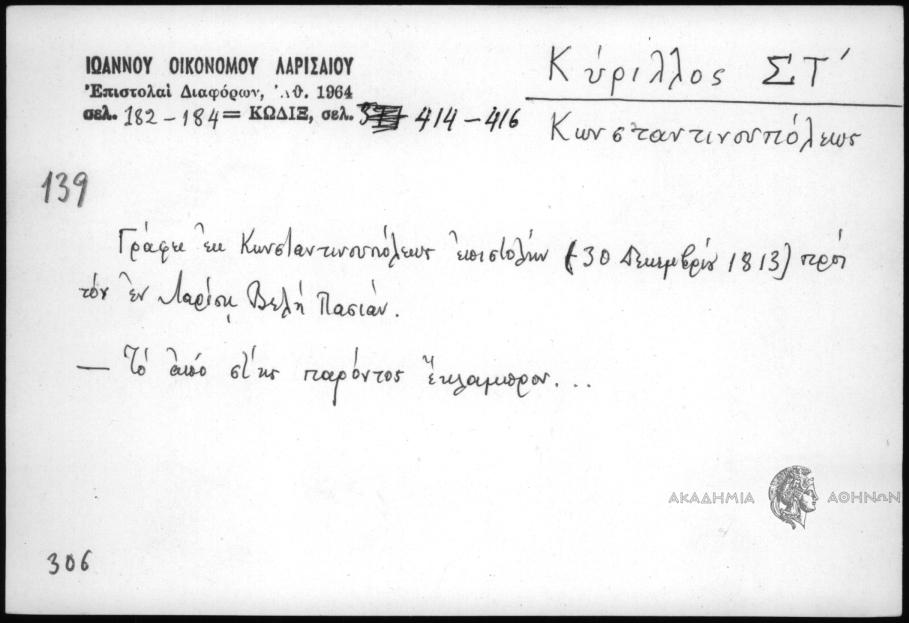 ΙΩΑΝΝΟΥ ΟΙΚΟΝΟΜΟΥ ΛΑΡΙΣΑΙΟΥ
Ἐπιστολαὶ Διαφόρων, Ἀθ. 1964
σελ. 182 – 184 = ΚΩΔΙΞ, σελ. 414 – 416
Κύριλλος ΣΤ΄
Κωνσταντινουπόλεως
139
Γράφει ἐκ Κωνσταντινουπόλεως ἐπιστολὴν (30 Δεκεμβρίου 1813) πρὸς
τὸν ἐν Λαρίσῃ Βελῆ Πασιᾶν.
— Τὸ ἀπὸ τῆς παρόντος ἔκλαμπρον...
ΑΚΑΔΗΜΙΑ ΑΘΗΝΩΝ
306